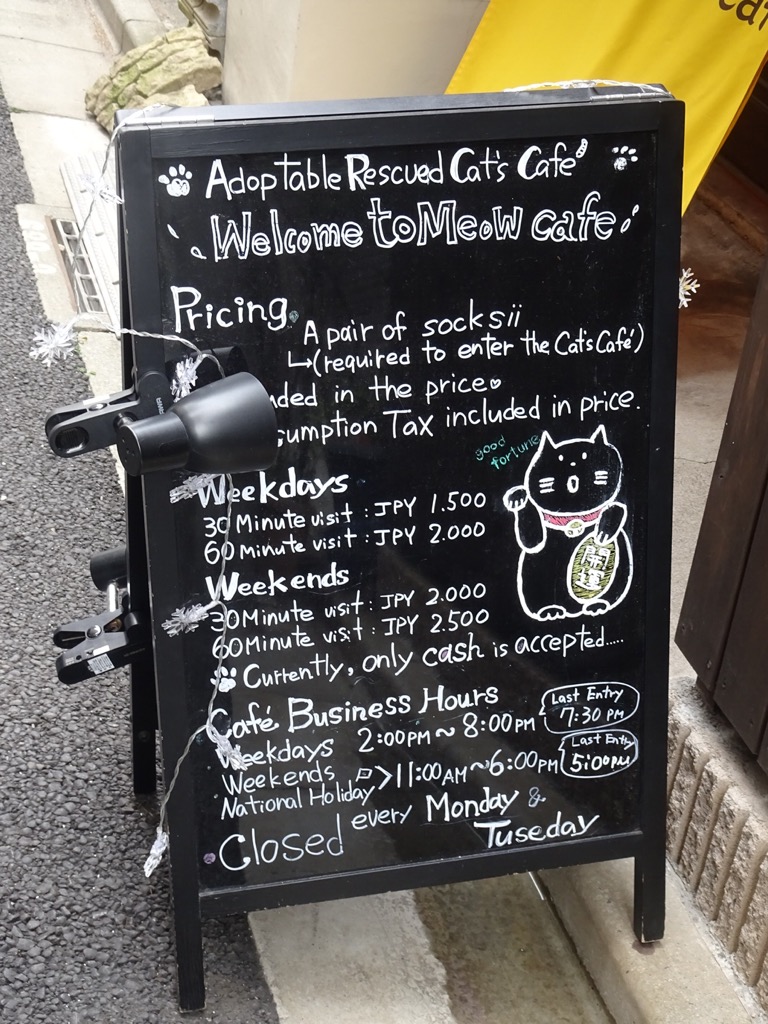 Adoptable Rescued Cat's Café
Welcome to Meow cafe
Pricing
A pair of socks!!
→(required to enter the Cat's Café)
in the price
Tax included in price.
good
fortune
開
運
Weekdays
30 Minute visit : JPY 1.500
60 Minute visit : JPY 2.000
Weekends
30 Minute visit : JPY 2.000
60 Minute visit : JPY 2.500
Currently, only cash is accepted.....
Café Business Hours
Weekdays 2:00PM~8:00PM Last Entry 7:30 PM
Weekends
National Holiday > 11:00AM~6:00PM Last Entry 5:00PM
Closed every Monday &
Tuseday